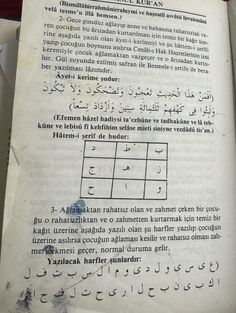 (Bismillâhirrahmânirrahıymi ve haşeatil asvâtü lirrahmâni
velâ tesme'u illâ hemsen.)
2- Gece gündüz ağlayıp anne ve babasına rahatsızlık ve-
ren çocuğun bu ârızasından kurtarılması için temiz bir kâğıt üze-
rine aşağıda yazılı olan âyet-i kerimeyi ve şu hâtem-i şerîfi
yazıp çocuğun boynuna asılırsa Cenâb-ı Hak Hazretlerinin izni
keremiyle çocuk ağlamaktan vazgeçer ve o ârızadan kurtu-
lur. Gül suyunda ezilmiş safran ile Besmele-i şerife ile bera-
ber yazılması lâzımdır.
Âyet-i kerime şudur:
(أَفَمِنْ هَذَا الْحَدِيثِ تَعْجَبُونَ وَتَضْحَكُونَ وَلَا تَبْكُونَ
وَلَبِثُوا فِي كَهْفِهِمْ ثَلَثَمِائَةٍ سِنِينَ وَازْدَادُوا تِسْعًا)
(Efemen hâzel hadiysi ta'cebûne ve tadhakûne ve lâ teb-
kûne ve lebisû fî kehfihim selâse mietin siniyne vezdâdû tis'an.)
Hâtem-i şerif de budur:
ب ط د
ز ه ج
و ا ح
3- Ağlamaktan rahatsız olan ve zahmet çeken bir çocu-
ğu o rahatsızlıktan ve o zahmetten kurtarmak için temiz bir
kağıt üzerine aşağıda yazılı olan şu harfler yazılıp çocuğun
üzerine asılırsa çocuğun ağlaması kesilir ve rahatsız olması zah-
met çekmesi geçer, normal duruma gelir.
Yazılacak harfler şunlardır: